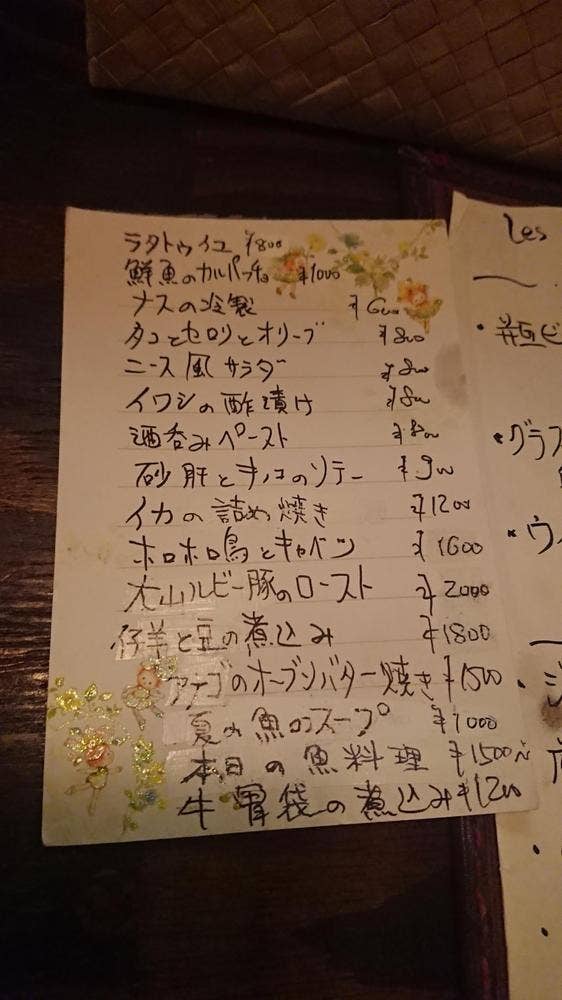 ラタトゥイユ ¥800
鮮魚のカルパッチョ ¥1000
ナスの冷製 ¥600
タコとセロリとオリーブ ¥800
ニース風サラダ ¥800
イワシの酢漬け ¥800
酒呑みペースト ¥800
砂肝とキノコのソテー ¥900
イカの詰め焼き ¥1200
ホロホロ鳥とキャベツ ¥1600
大山ルビー豚のロースト ¥2000
仔羊と豆の煮込み ¥1800
アナゴのオーブンバター焼き ¥1500
夏の魚のスープ ¥1000
本日の魚料理 ¥1500~
牛胃袋の煮込み ¥1200
Les
・瓶ビ
・グラス
・ウィ